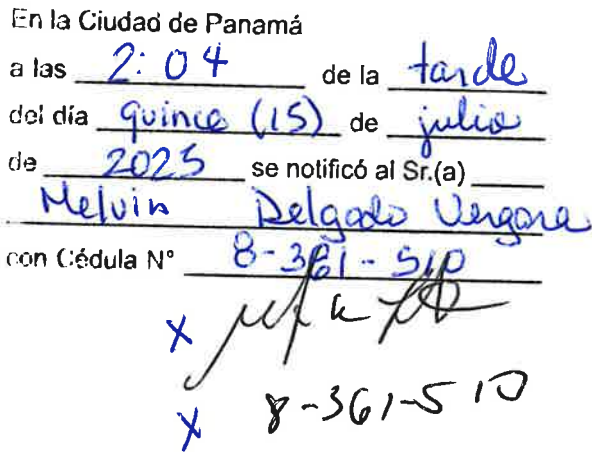 En la Ciudad de Panamá
a las 2:04 de la tarde
del día quince (15) de julio
de 2025 se notificó al Sr.(a)
Melvin Delgado Vergara
con Cédula N° 8-361-510
X
X 8-361-510